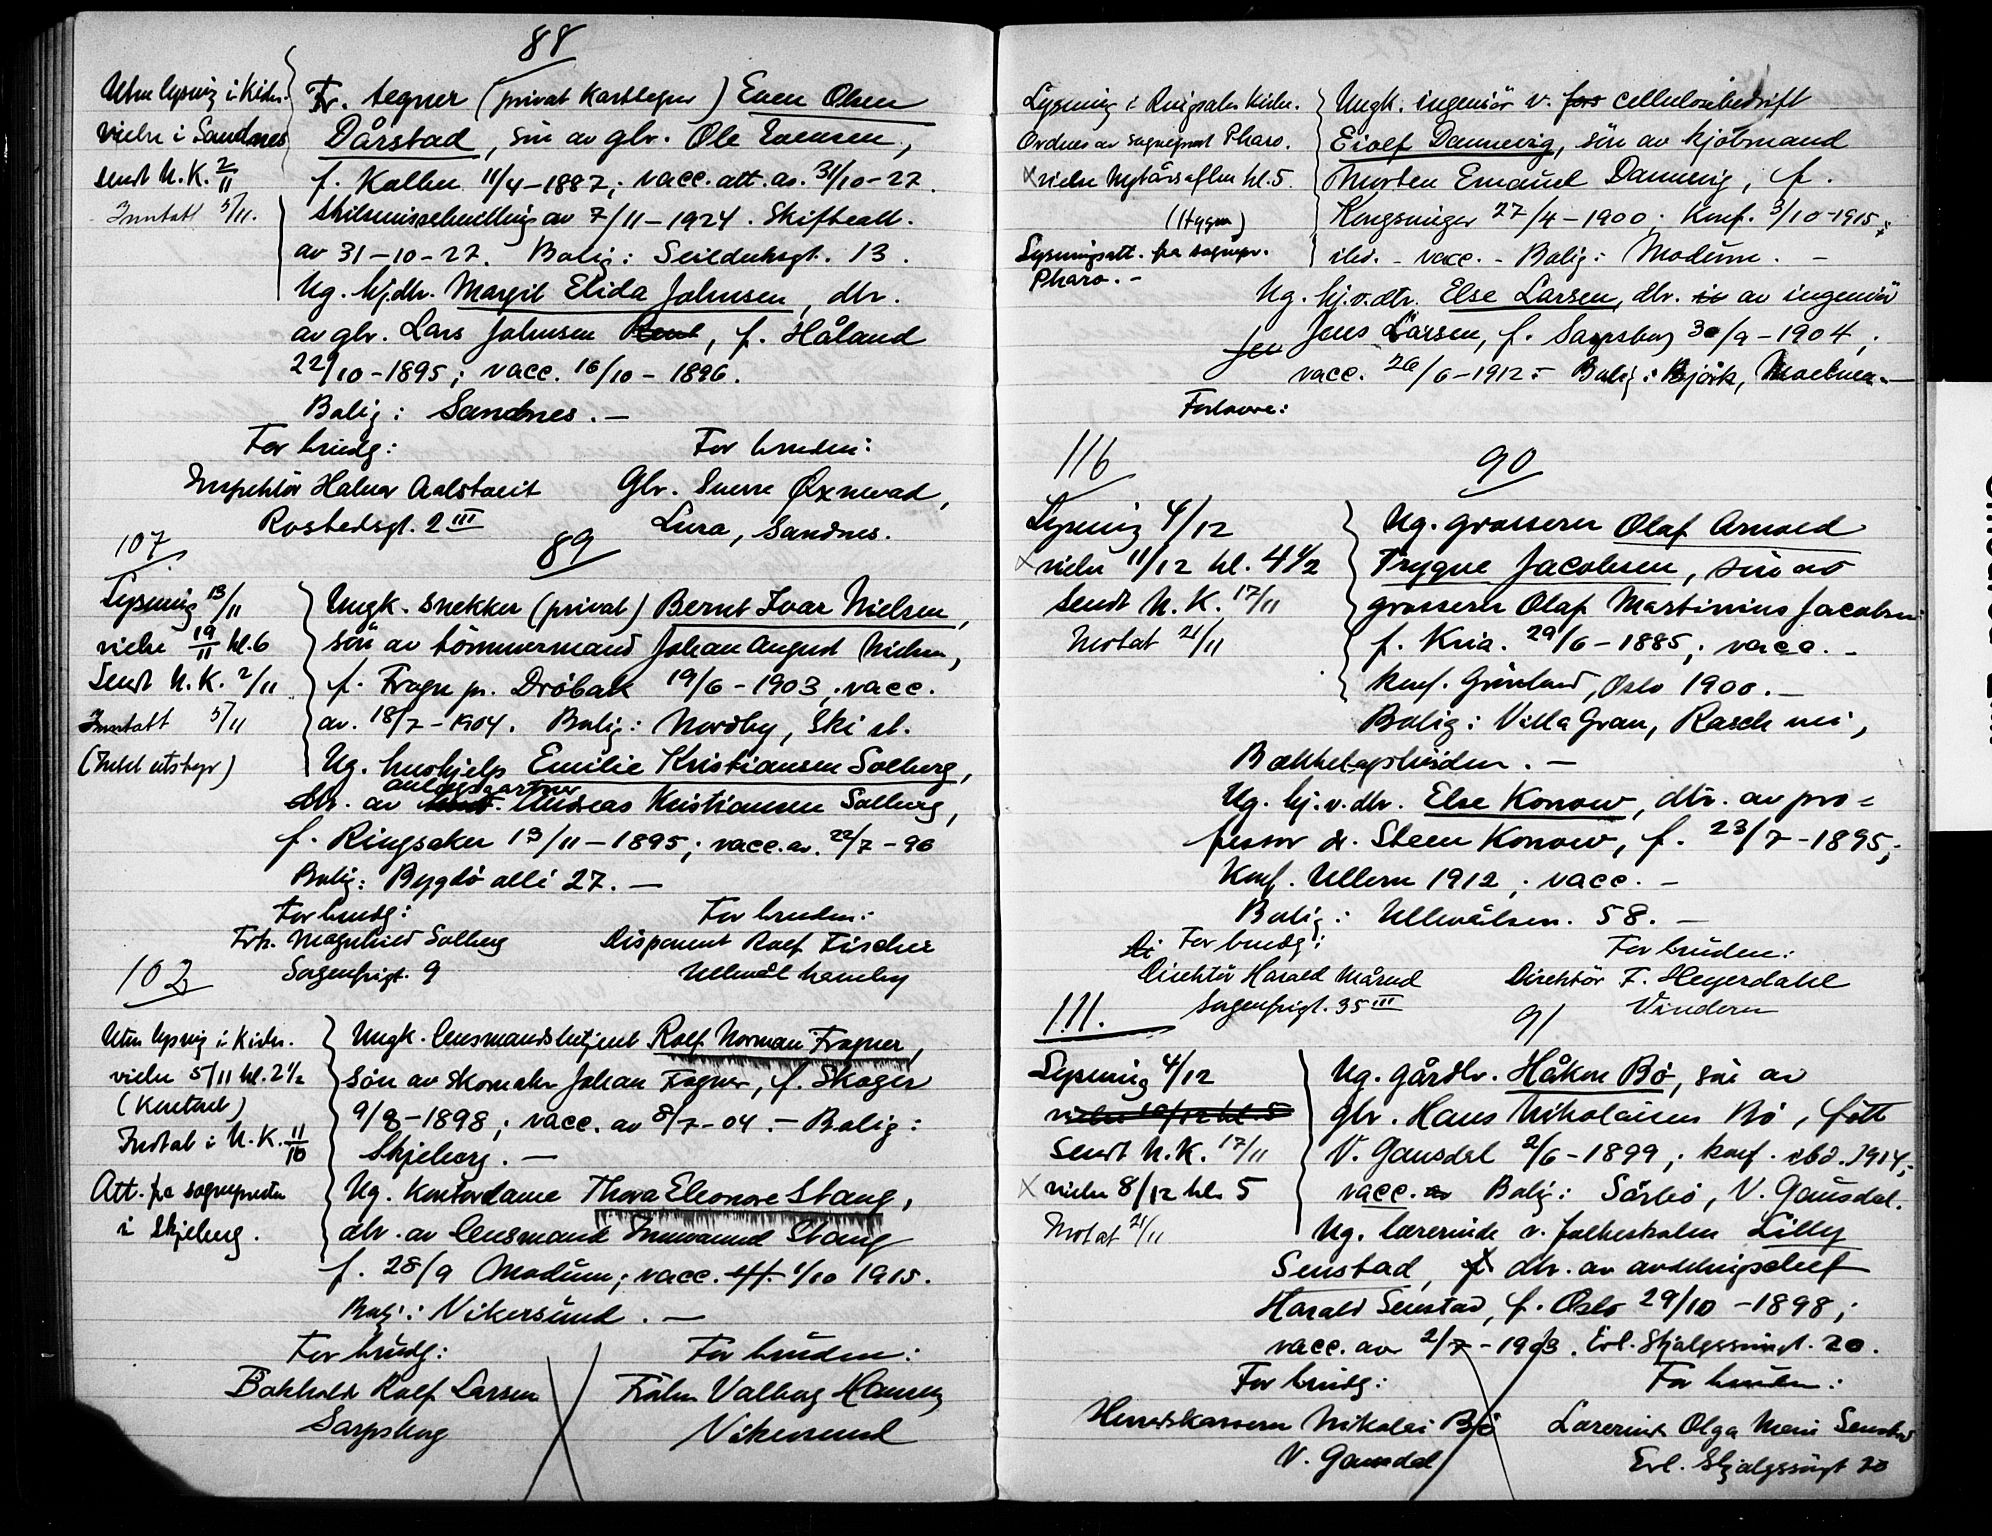 88
Uten lysning i Kirken.
vielse i Sandnes
sendt U.K. 2/11
Inntatt 5/11.
Fr. tegner (privat Karttegner) Even Olsen
Dårstad, søn av gbr. Ole Evensen,
f. 11/4-1887; vacc. att. av. 31/10-27.
skilsmissebevilling av 7/11-1924. Skifteatt.
av 31-10-27. Bolig: Seilduksgt. 13.
Ug. hj.dtr. Margit Elida Johnsen, dtr.
av gbr. Lars Johnsen, f. Håland
22/10-1895; vacc. 16/10-1896.
Bolig: Sandnes. —
For brudg: For bruden:
Inspektör Halvor Aalstveit Gbr. Sverre Øxnevad,
Rostedsgt. 2 III Lura, Sandnes.
107
89
Lysning 13/11
vielse 19/11 kl. 6
Sendt U.K. 2/11
Inntatt 5/11
Ungk. snekker (privat) Bernt Ivar Nielsen,
sön av tömmermand Johan August Nielsen,
f. Frogn pr. Dröbak 19/6-1903, vacc.
av. 18/7-1904. Bolig: Nordby, Ski st.
Ug. hushjelp Emilie Kristiansen Solberg,
anlægsgartner
dtr. av Andreas Kristiansen Solberg,
f. Ringsaker 13/11-1895; vacc. av. 22/7-96
Bolig: Bygdö allé 27. —
For brudg: For bruden:
Frk. Magnhild Solberg Disponent Rolf Fischer
Sorgenfrigt. 9 Ullevål haveby
102
Uten lysning i Kirken.
vielse 5/11 kl. 2 1/2
(Kontoret)
Inntat i U.K. 11/10
Att. fra sognepresten
i Skjeberg.
Ungk. lensmandsbetjent Rolf Norman Fragner,
sön av skomaker Johan Fagner, f. Skager
9/8-1898; vacc. av 8/7-04. - Bolig:
Skjeberg. —
Ug. Kontordame Thora Eleonore Stang,
dtr. av lensmand Stang
f. 28/9 Modum; vacc. 1/10 1915.
Bolig: Vikersund. —
For brudg: For bruden:
Bokholder Rolf Larsen Fröken Valborg Hansen
Sarpsborg Vikersund
Lysning i Ringsaker Kirke.
Ordnes av sogneprest Pharo.
x vielse Nytårsaften kl. 5.
Lysningsatt. fra sognepr.
Pharo. -
Ungk. ingeniör v. cellulosebedrift
Eiolf Dannevig, sön av kjöbmand
Morten Emanuel Dannevig, f.
Kongsvinger 27/4-1900. Konf. 3/10-1915,
ibid. - vacc. - Bolig: Modum. -
Ug. hj.v.dtr. Else Larsen, dtr. av ingeniör
Jens Larsen, f. Sarpsborg 30/9-1904,
vacc. 26/6-1912. - Bolig: Björk, Moelven. —
Forlovere:
116
90
Lysning 4/12
x vielse 11/12 kl. 4 1/2
Sendt U.K. 17/11
Mottat 21/11
Ug. grosserer Olaf Arnold
Trygve Jacobsen, sön av
grosserer Olaf Martinius Jacobsen
f. Kria. 29/6-1885; vacc. -
Konf. Grönland, Oslo 1900. -
Bolig: Villa Gran, Rasch vei,
Bækkelagshöiden. —
Ug. hj.v.dtr. Else Konow, dtr. av pro=
fessor dr. Steen Konow, f. 23/7-1895;
Konf. Ullern 1912, vacc. -
Bolig: Ullevålsvn. 58. -
For brudg: For bruden:
Direktör Harald Mårud Direktör F. Heyerdahl
Sorgenfrigt. 35 III Vinderen
111.
91
Lysning 4/12
vielse 10/12 kl. 5
Sendt U.K. 17/11
x vielse 8/12 kl. 5
Mottat 21/11
Ug. gårdbr. Håkon Bö, sön av
gbr. Hans Nikolaisen Bö, född
V. Gausdal 2/6-1899; konf. ibd. 1914;
vacc. Bolig: Sörbö, V. Gausdal.
Ug. lærerinde v. folkeskolen Lilly
Senstad, dtr. av avdelingschef
Harald Senstad, f. Oslo 29/10-1898;
vacc. av 2/7-1903. Erl. Skjalgssönsgt. 20.
For brudg: For bruden:
Herredskasserer Nikolai Bö Lærerinde Olga Marie Senstad
V. Gausdal Erl. Skjalgssönsgt 20